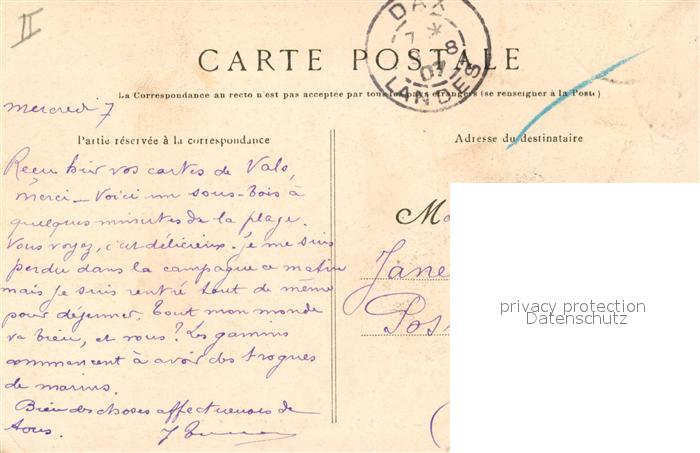 II
DAX
7 * 8
07
LANDES
CARTE POSTALE
La Correspondance au recto n'est pas acceptée par tous les pays étrangers (se renseigner à la Poste)
mercredi 7
Partie réservée à la correspondance
Reçu hier vos cartes de Vals,
merci _ Voici un sous-bois à
quelques minutes de la plage.
Vous voyez, c'est délicieux. je me suis
perdu dans la campagne ce matin
mais je suis rentré tout de même
pour déjeuner. Tout mon monde
va bien, et vous? Les gamins
commencent à avoir des trognes
de marins.
Bien des choses affectueuses de
tous.
Adresse du destinataire
M
Jane
Pos
privacy protection
Datenschutz